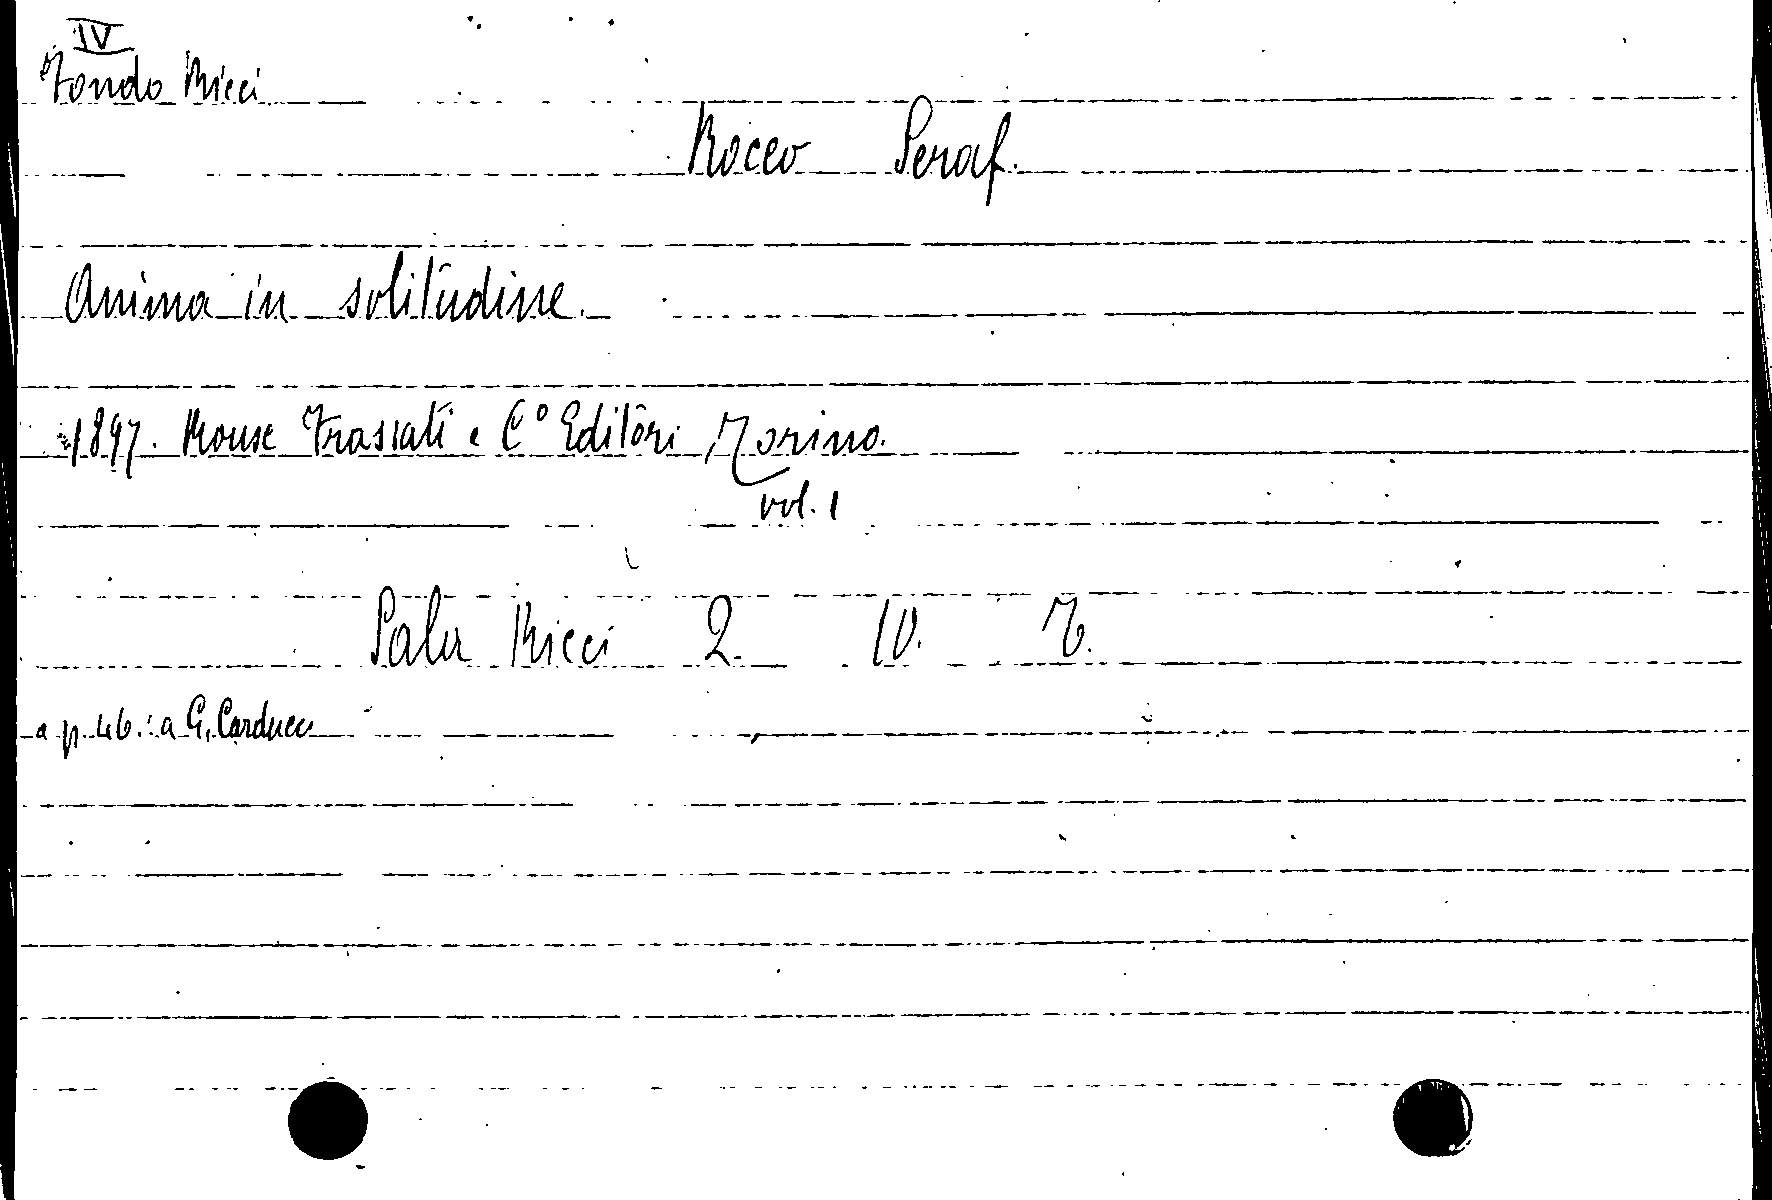 IV
Fondo Ricci
Rocco Seraf.
Anima in solitudine.
1897. Rouse Frassati e C° Editori Torino.
vol. 1
Sala Ricci 2. IV. 7.
a p. 46. : a G. Carducci